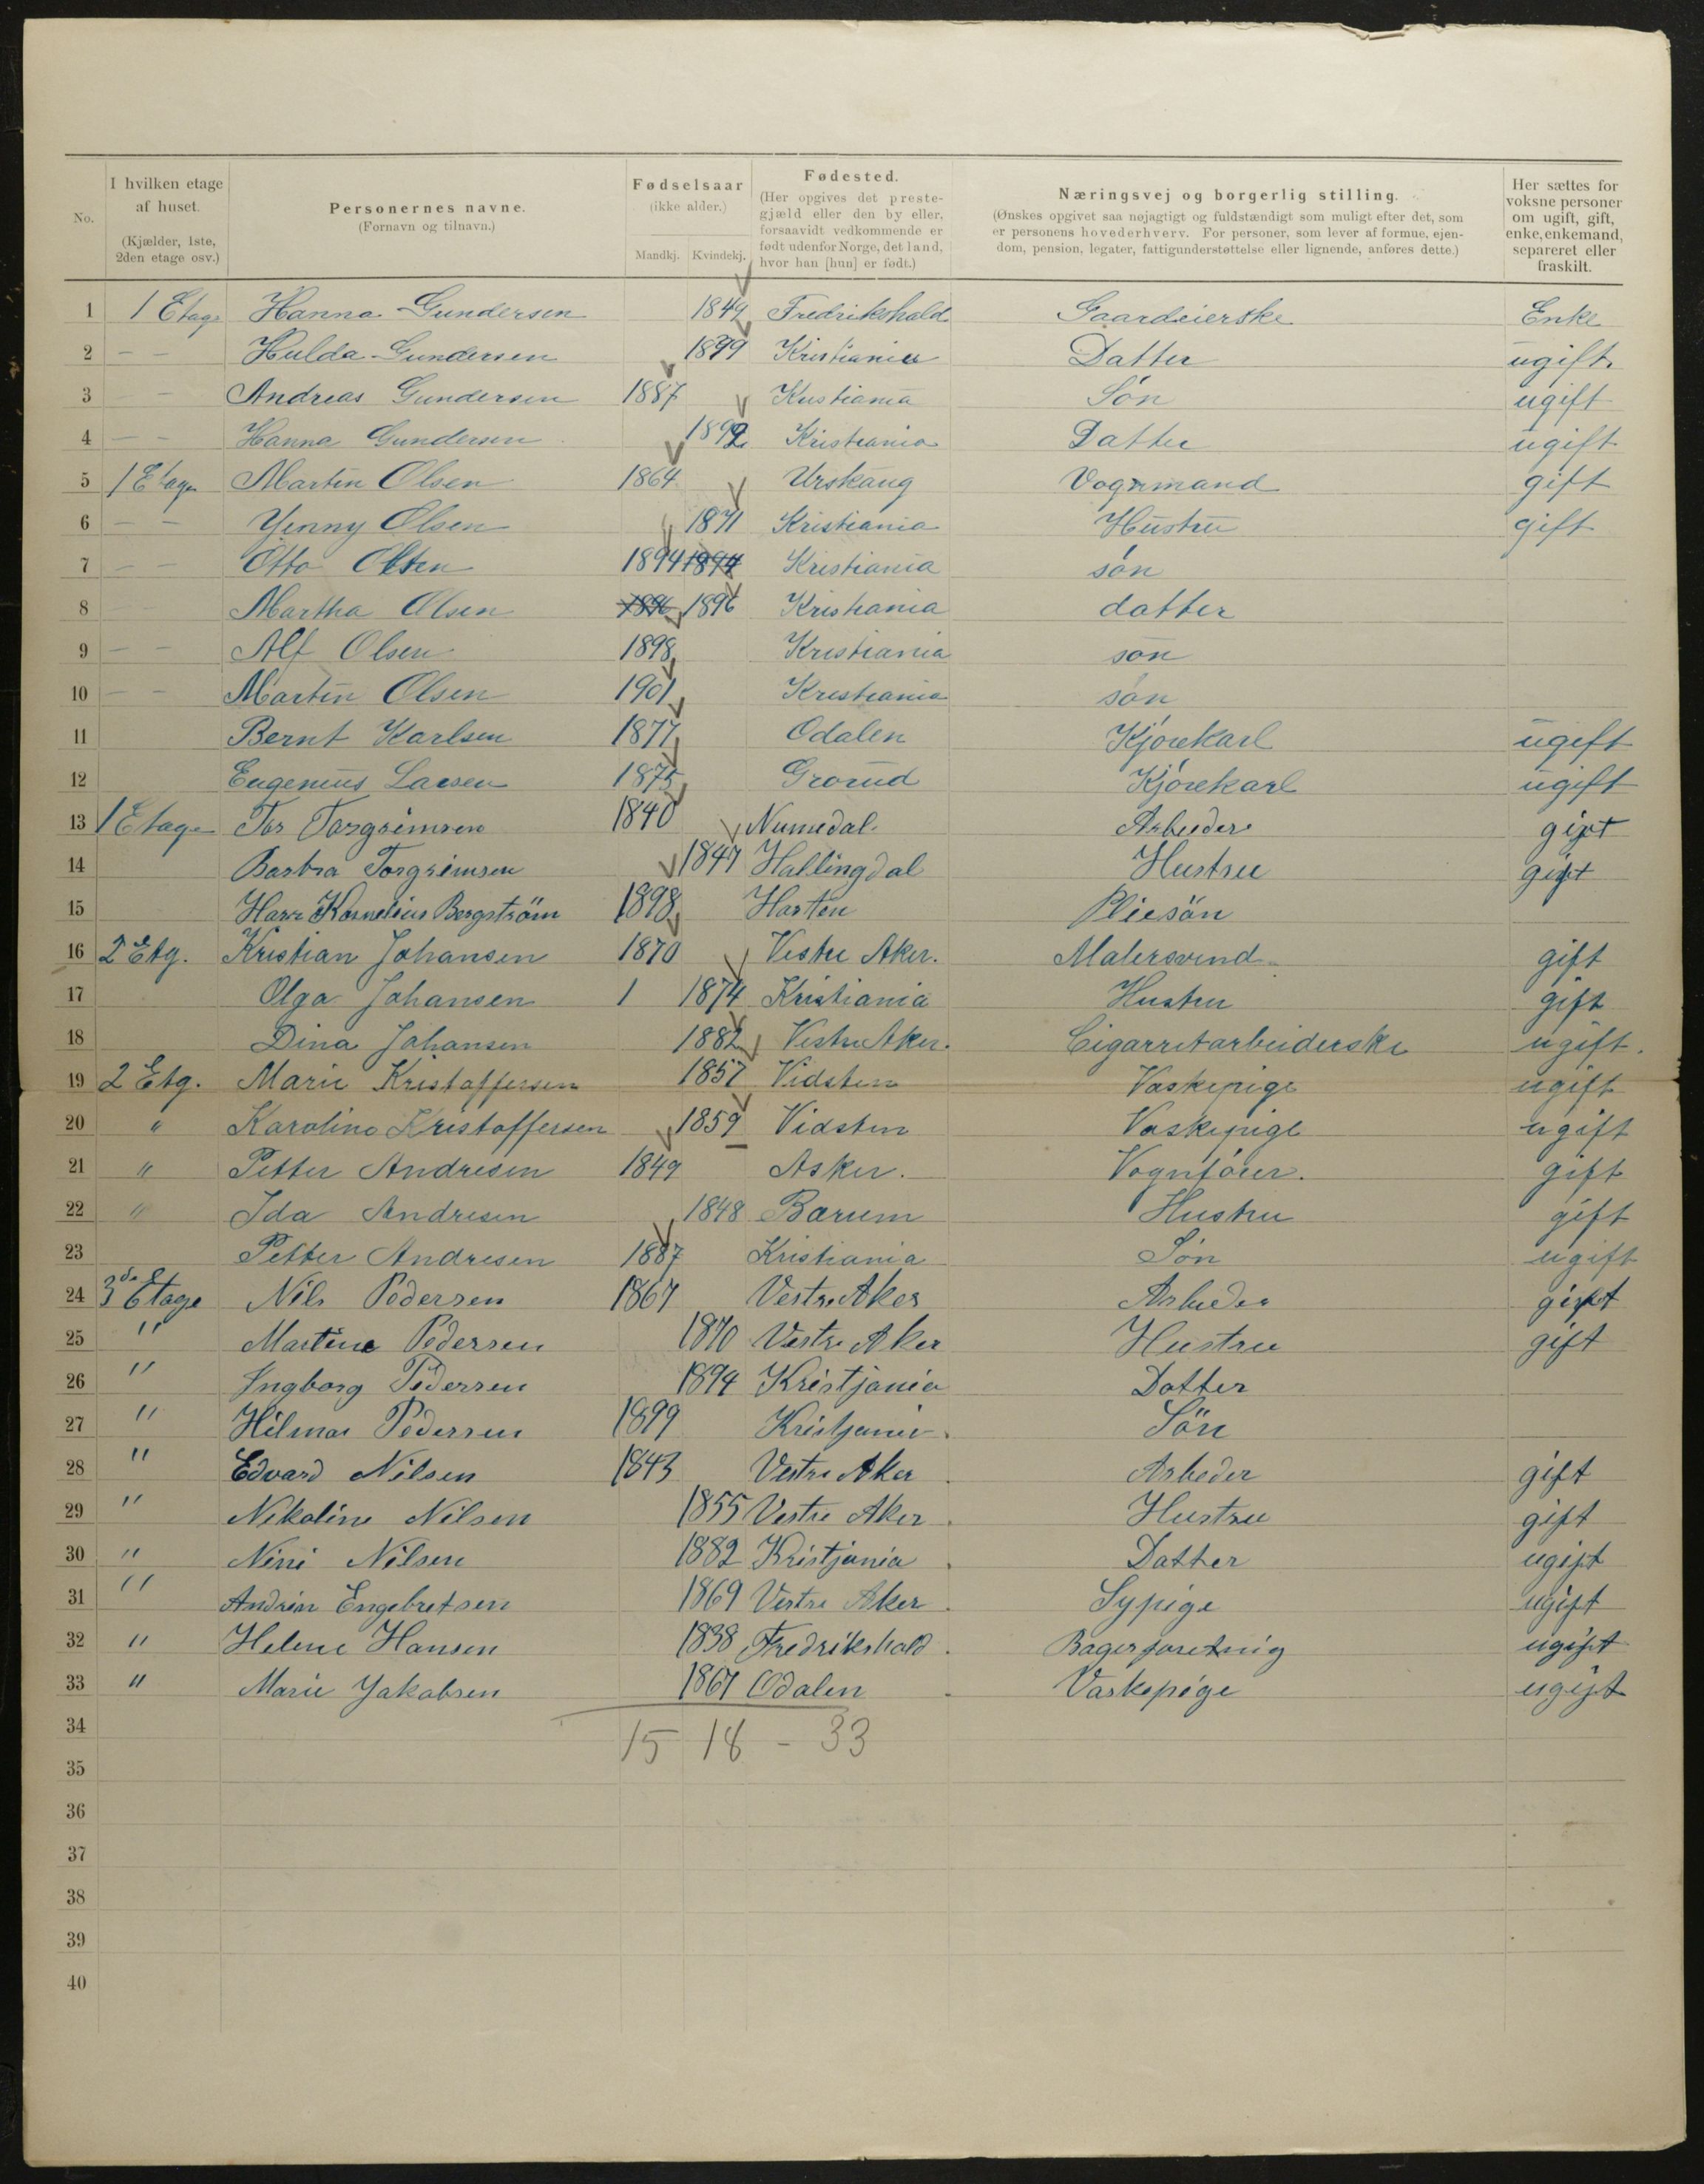 No. I hvilken etage af huset. (Kjælder, 1ste, 2den etage osv.) Personernes navne. (Fornavn og tilnavn.) Fødselsaar (ikke alder.) Mandkj. Kvindekj. Fødested. (Her opgives det prestegjæld eller den by eller, forsaavidt vedkommende er født udenfor Norge, det land, hvor han [hun] er født.) Næringsvej og borgerlig stilling. (Ønskes opgivet saa nøjagtigt og fuldstændigt som muligt efter det, som er personens hovederhverv. For personer, som lever af formue, ejendom, pension, legater, fattigunderstøttelse eller lignende, anføres dette.) Her sættes for voksne personer om ugift, gift, enke, enkemand, separeret eller fraskilt.
1 1 Etage Hanna Gundersen 1849 Fredrikshald Gaardeierske Enke
2 — — Hulda Gundersen 1879 Kristiania Datter ugift.
3 — — Andreas Gundersen 1887 Kristiania Søn ugift
4 — — Hanna Gundersen Kristiania Datter ugift
5 1 Etage Martin Olsen 1864 Urskaug Vognmand gift
6 — — Yenny Olsen 1871 Kristiania Hustru gift
7 — — Otto Olsen 1894 1894 Kristiania søn
8 — Martha Olsen 1896 1896 Kristiania datter
9 — — Alf Olsen 1898 Kristiania søn
10 — — Martin Olsen 1901 Kristiania søn
11 Bernt Karlsen 1877 Odalen Kjørekarl ugift
12 Eugenius Larsen 1875 Grorud Kjørekarl ugift
13 1 Etage Tor Torgrimsen 1840 Numedal. Arbeider gift
14 Barbra Torgrimsen 1847 Hallingdal Hustru gift
15 Kornelius Bergström 1898 Horten Pliesön
16 2 Etg. Kristian Johansen 1870 Vestre Aker. Malersvend gift
17 Olga Johansen 1 1874 Kristiania Hustru gift
18 Dina Johansen 1882 Vestre Aker. Cigarretarbeiderske ugift.
19 2 Etg. Marie Kristoffersen 1857 Vidsten Vaskepige ugift
20 " Karoline Kristoffersen 1859 Vidsten Vaskepige ugift
21 " Petter Andresen 1849 Asker. Vognfører. gift
22 " Ida Andresen 1848 Bærum Hustru gift
23 Petter Andresen 1887 Kristiania Søn ugift
24 3de Etage Nils Pedersen 1867 Vestre Aker Arbeder gift
25 " Martine Pedersen 1870 Vestre Aker Hustru gift
26 " Ingborg Pedersen 1894 Kristjania Datter
27 " Hilmar Pedersen 1899 Kristjania. Sön
28 " Edvard Nilsen 1843 Vestre Aker Arbeder gift
29 " Nikoline Nilsen 1855 Vestre Aker. Hustru gift
30 " Nini Nilsen 1882 Kristjania. Datter ugift
31 " Andrine Engebretsen 1869 Vestre Aker. Sypige ugift
32 " Helene Hansen 1838 Fredrikshald. Bagerforetnig ugift
33 " Marie Jakobsen 1867 Odalen. Vaskepige ugift
34 15 18 - 33
35
36
37
38
39
40